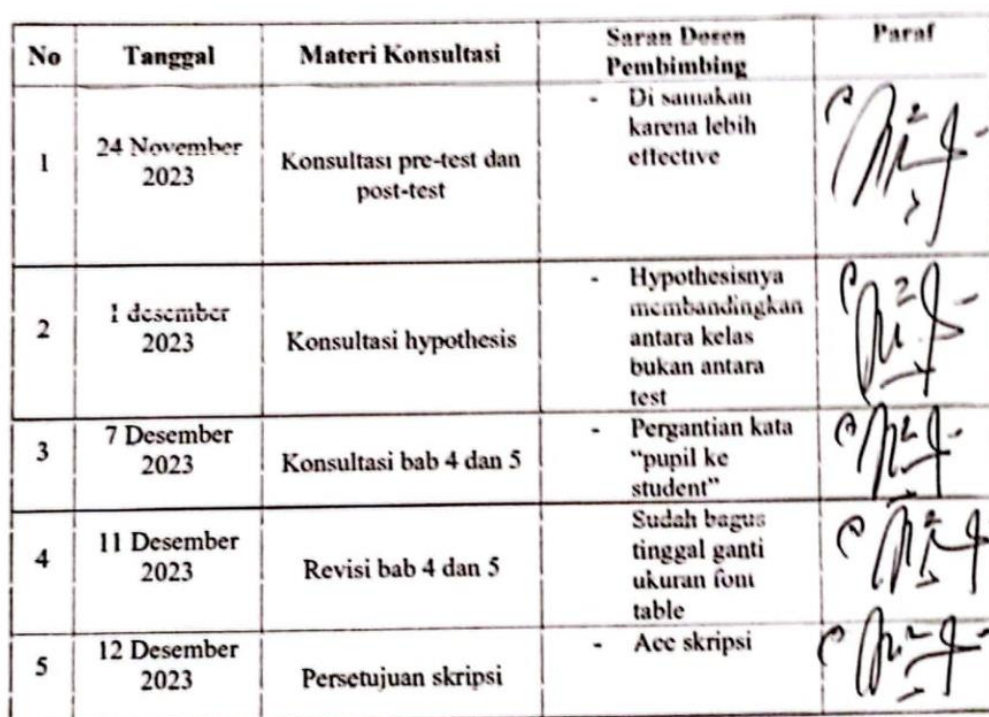 No Tanggal Materi Konsultasi Saran Dosen Pembimbing Paraf
1
24 November
2023
Konsultasi pre-test dan
post-test
- Di samakan
karena lebih
effective
2
1 desember
2023
Konsultasi hypothesis
- Hypothesisnya
membandingkan
antara kelas
bukan antara
test
3
7 Desember
2023
Konsultasi bab 4 dan 5
- Pergantian kata
“pupil ke
student”
4
11 Desember
2023
Revisi bab 4 dan 5
Sudah bagus
tinggal ganti
ukuran font
table
5
12 Desember
2023
Persetujuan skripsi
- Acc skripsi